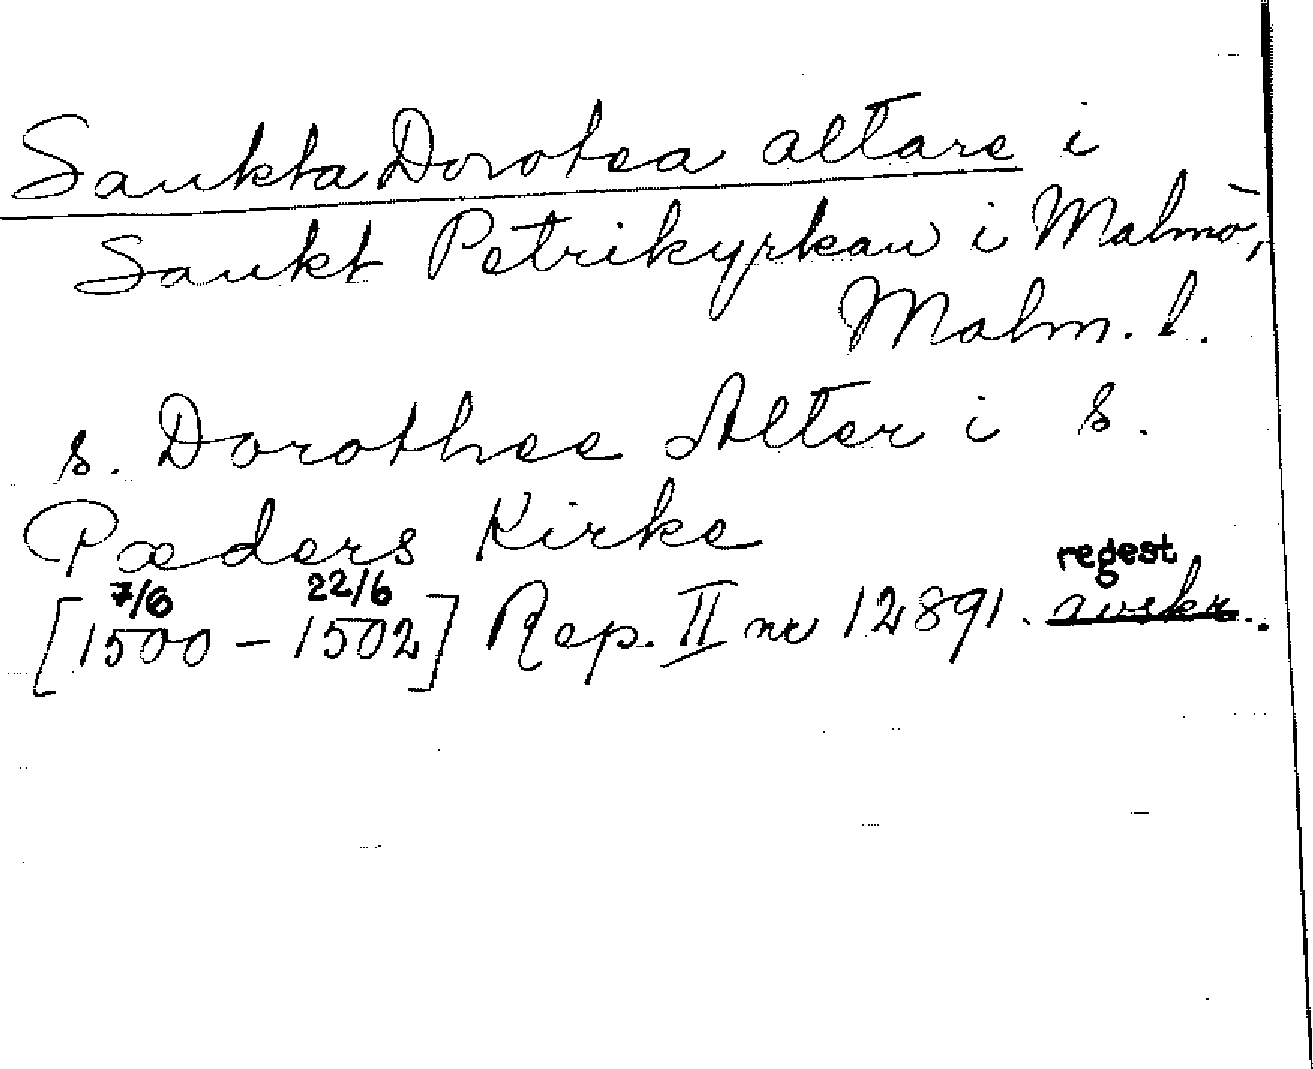 Sankta Dorotea altare i
Sankt Petrikyrkan i Malmö,
Malm. l.
s. Dorothee Alter i S.
Pæders Kirke
7/6 22/6 regest
[1500 – 1502] Rep. II nr 12891. avskr..